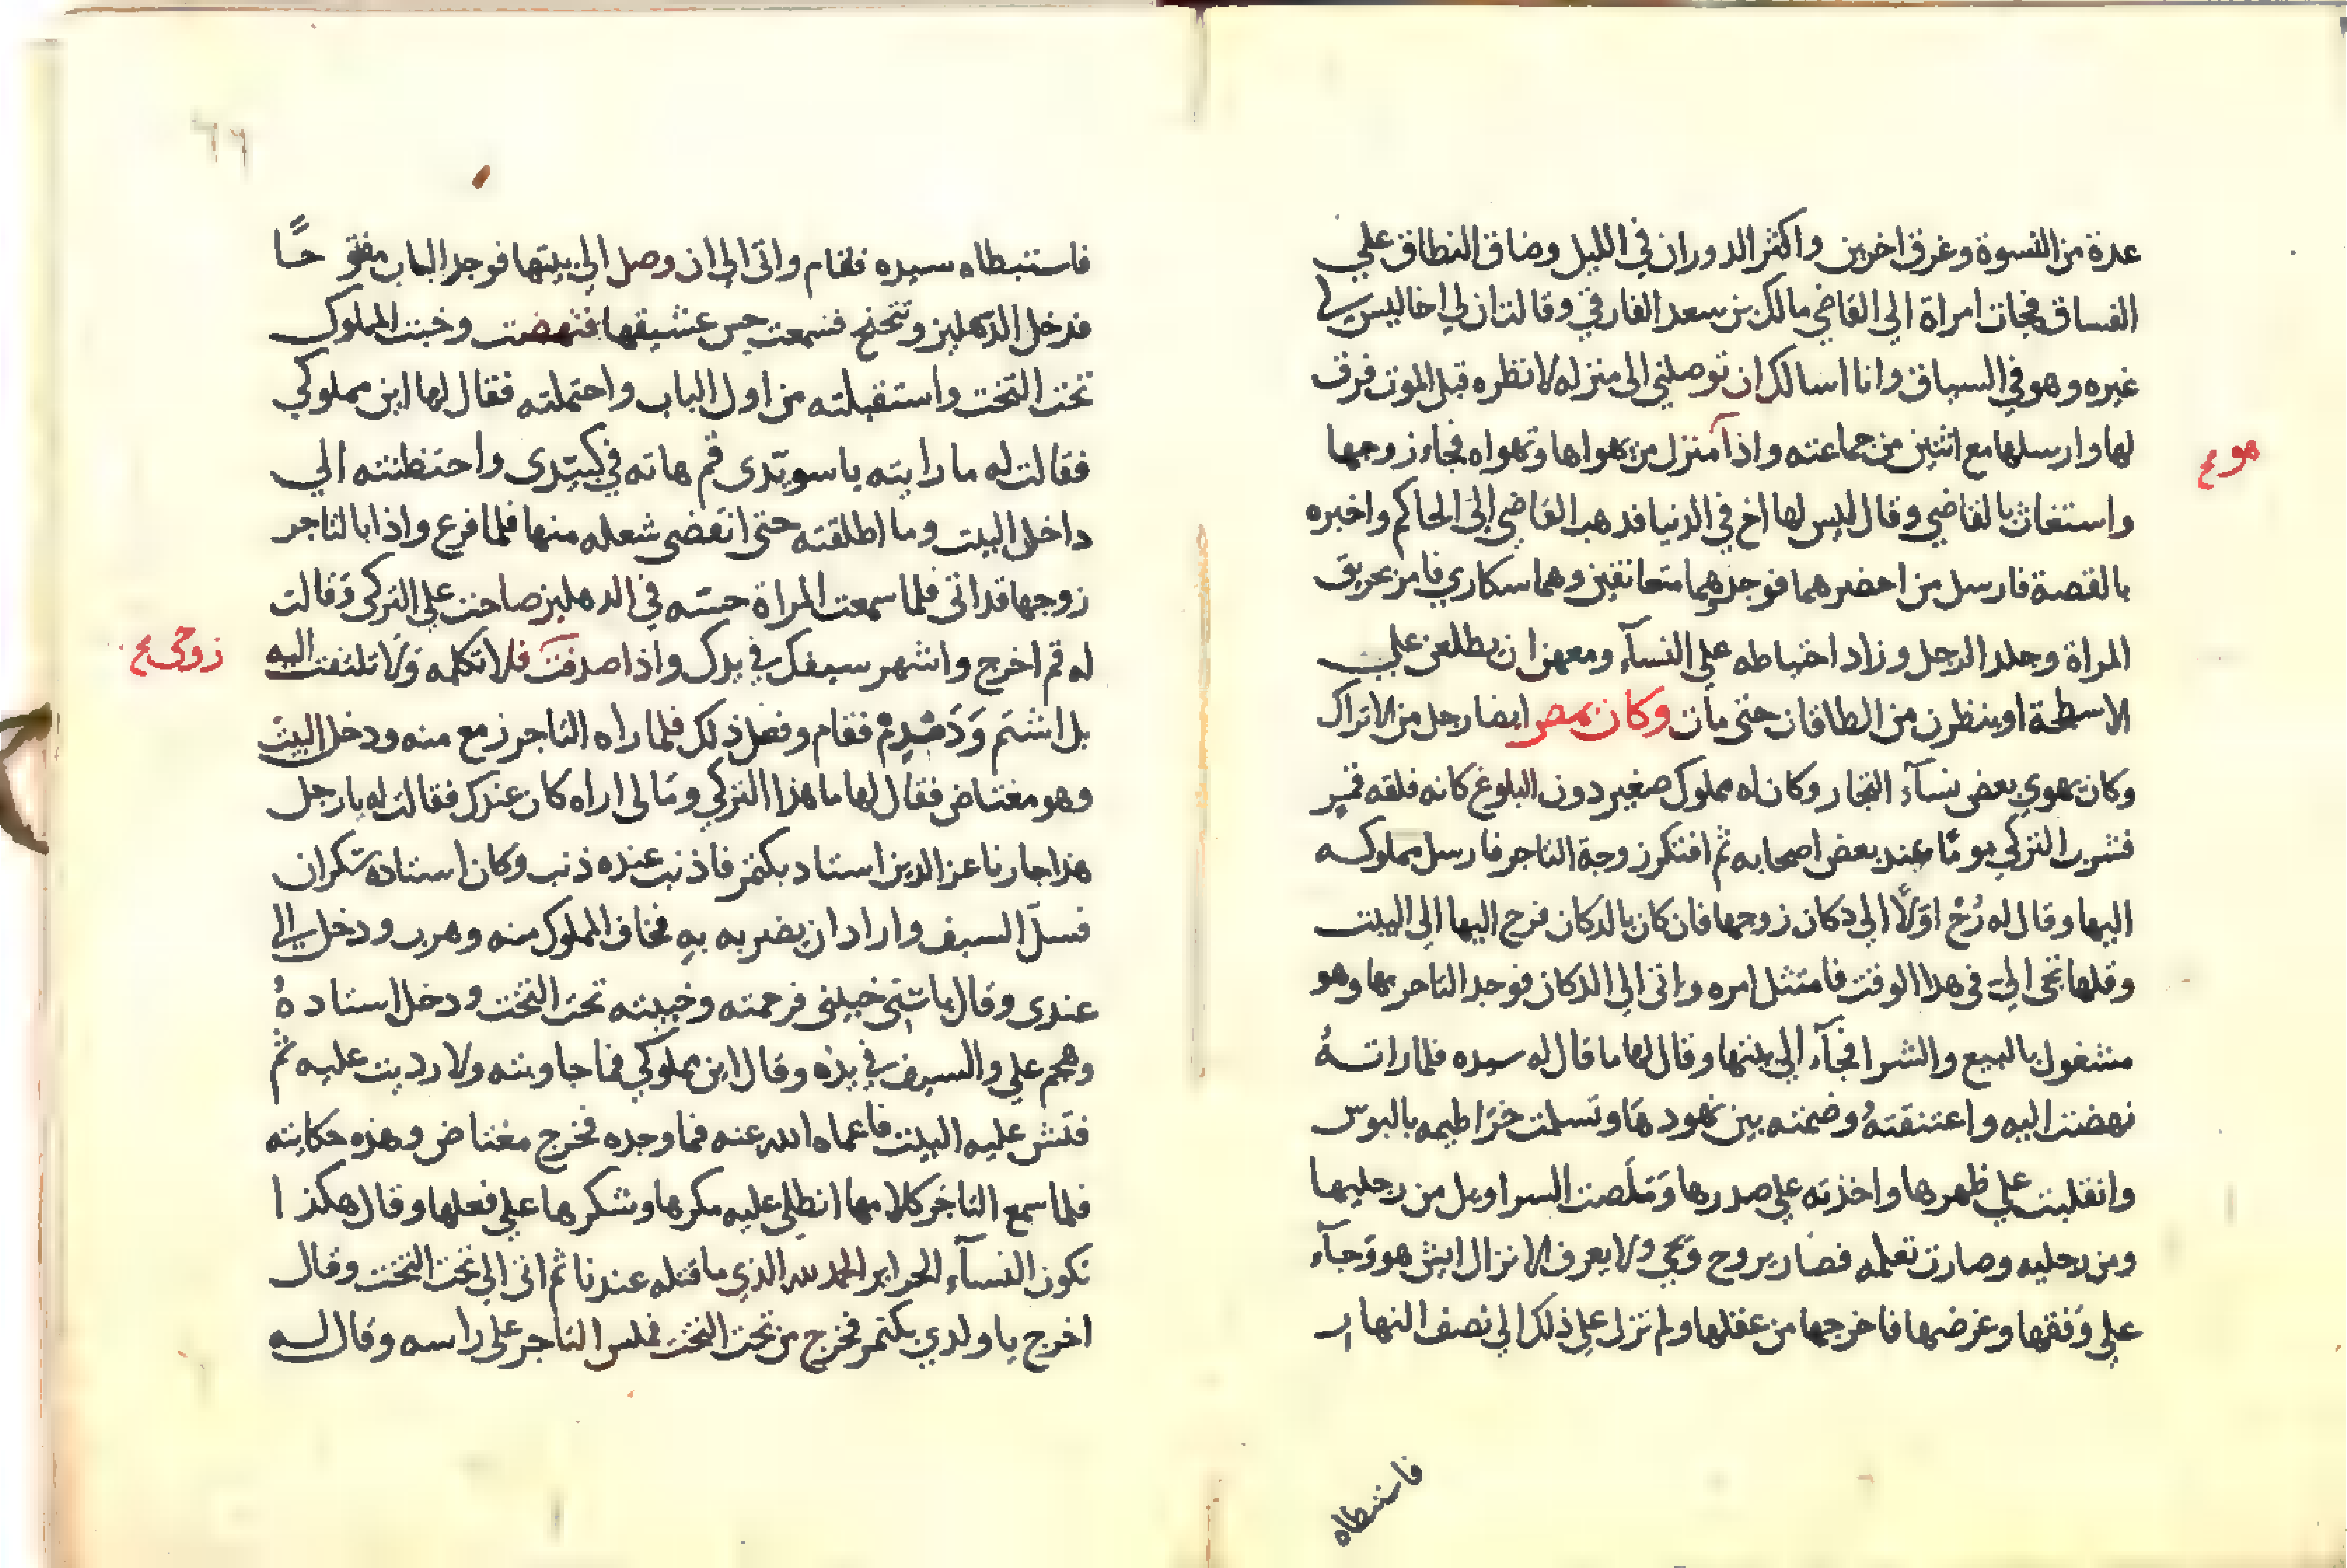 عدة من النسوة وغرق اخرين واكثر الدوران في الليل وضاق النطاق علي
الفساق فجات امراة الي القاضي مالك بن سعد الفارقي وقالت ان لي اخا ليس لي
غيره وهو في السباق وانا اسالك ان توصلني الى منزله لانظره قبل الموت فرق
لها وارسلها مع اثنين من جماعته واذا منزل من يهواها وتهواه فجاء زوجها
هو ع
واستغاث بالقاضي وقال ليس لها اخ في الدنيا فذهب القاضي الى الحاكم واخبره
بالقصة فارسل من احضرهما فوجدهما متعانقين وهما سكاري فامر بحريق
المراة وجلد الرجل وزاد احتياطه علي النسآء ومنعهن ان يطلعن علي
الاسطحة او ينظرن من الطاقات حتى مات وكان بمصر ايضا رجل من الاتراك
وكان يهوي بعض نسآء التجار وكان له مملوك صغير دون البلوغ كانه فلقه قمر
فشرب التركي يومًا عند بعض اصحابه ثم افتكر زوجة التاجر فارسل مملوكه
اليها وقال له رُحْ اوّلاً الي دكان زوجها فان كان بالدكان فرح اليها الي البيت
وقلها تجى الي في هذا الوقت فامتثل امره واتى الي الدكان فوجد التاجر بها وهو
مشغول بالبيع والشرا فجآء الي بيتها وقال لها ما قال له سيده فلما راته
نهضت اليه واعتنقته وضمته بين نهودها وتسلمت خراطيمه بالبوس
وانقلبت علي ظهرها واخذته علي صدرها وقلصت السراويل من رجليها
ومن رجليه وصارت تعلمه فصار يروح ويجي ولا يعرف الانزال ايش هو وجآء
علي وفقها وغرضها فاخرجها من عقلها ولم تزل علي ذلك الي نصف النهار
فاستبطاه
٦٦
فاستبطاه سيده فقام واتى الي ان وصل الي بيتها فوجد الباب مفتوحًا
فدخل الدهليز وتنحنح فسمعت حس عشيقها فنهضت وخبت المملوك
تحت التخت واستقبلته من اول الباب واحتملته فقال لها اين مملوكي
فقالت له ما رايته يا سويّدي قم هاته في كبيّدي واحتظنته الي
داخل البيت وما اطلقته حتى انقضى شغله منها فلما فرغ واذا بالتاجر
زوجها قد اتى فلما سمعت المراة حسّه في الدهليز صاحت علي التركي وقالت
له قم اخرج واشهر سيفك في يدك واذا صدفت فلا تكلمه ولا تلتفت اليه
زوجي ع
بل اشتم وَدَمْدِمْ فقام وفعل ذلك فلما راه التاجر زمع منه ودخل البيت
وهو مغتاض فقال لها ما هذا التركي وما لي اراه كان عندك فقالت له يا رجل
هذا جارنا عز الدين استاد بكتمر فاذنب عنده ذنب وكان استاده سكران
فسلّ السيف واراد ان يضربه به فخاف المملوك منه وهرب ودخل الي
عندي وقال يا ستي خبيني فرحمته وخبيته تحت التخت ودخل استاده
وهجم علي والسيف في يده وقال اين مملوكي فما جاوبته ولا رديت عليه ثم
فتش عليه البيت فاعماه الله عنه فما وجده فخرج مغتاض وهذه حكايته
فلما سمع التاجر كلامها انطلي عليه مكرها وشكرها علي فعلها وقال هكذا
تكون النسآء الحراير الحمد لله الذي ما قتله عندنا ثم اتى الي تحت التخت وقال
اخرج يا ولدي بكتمر فخرج من تحت التخت فملس التاجر على راسه وقال له